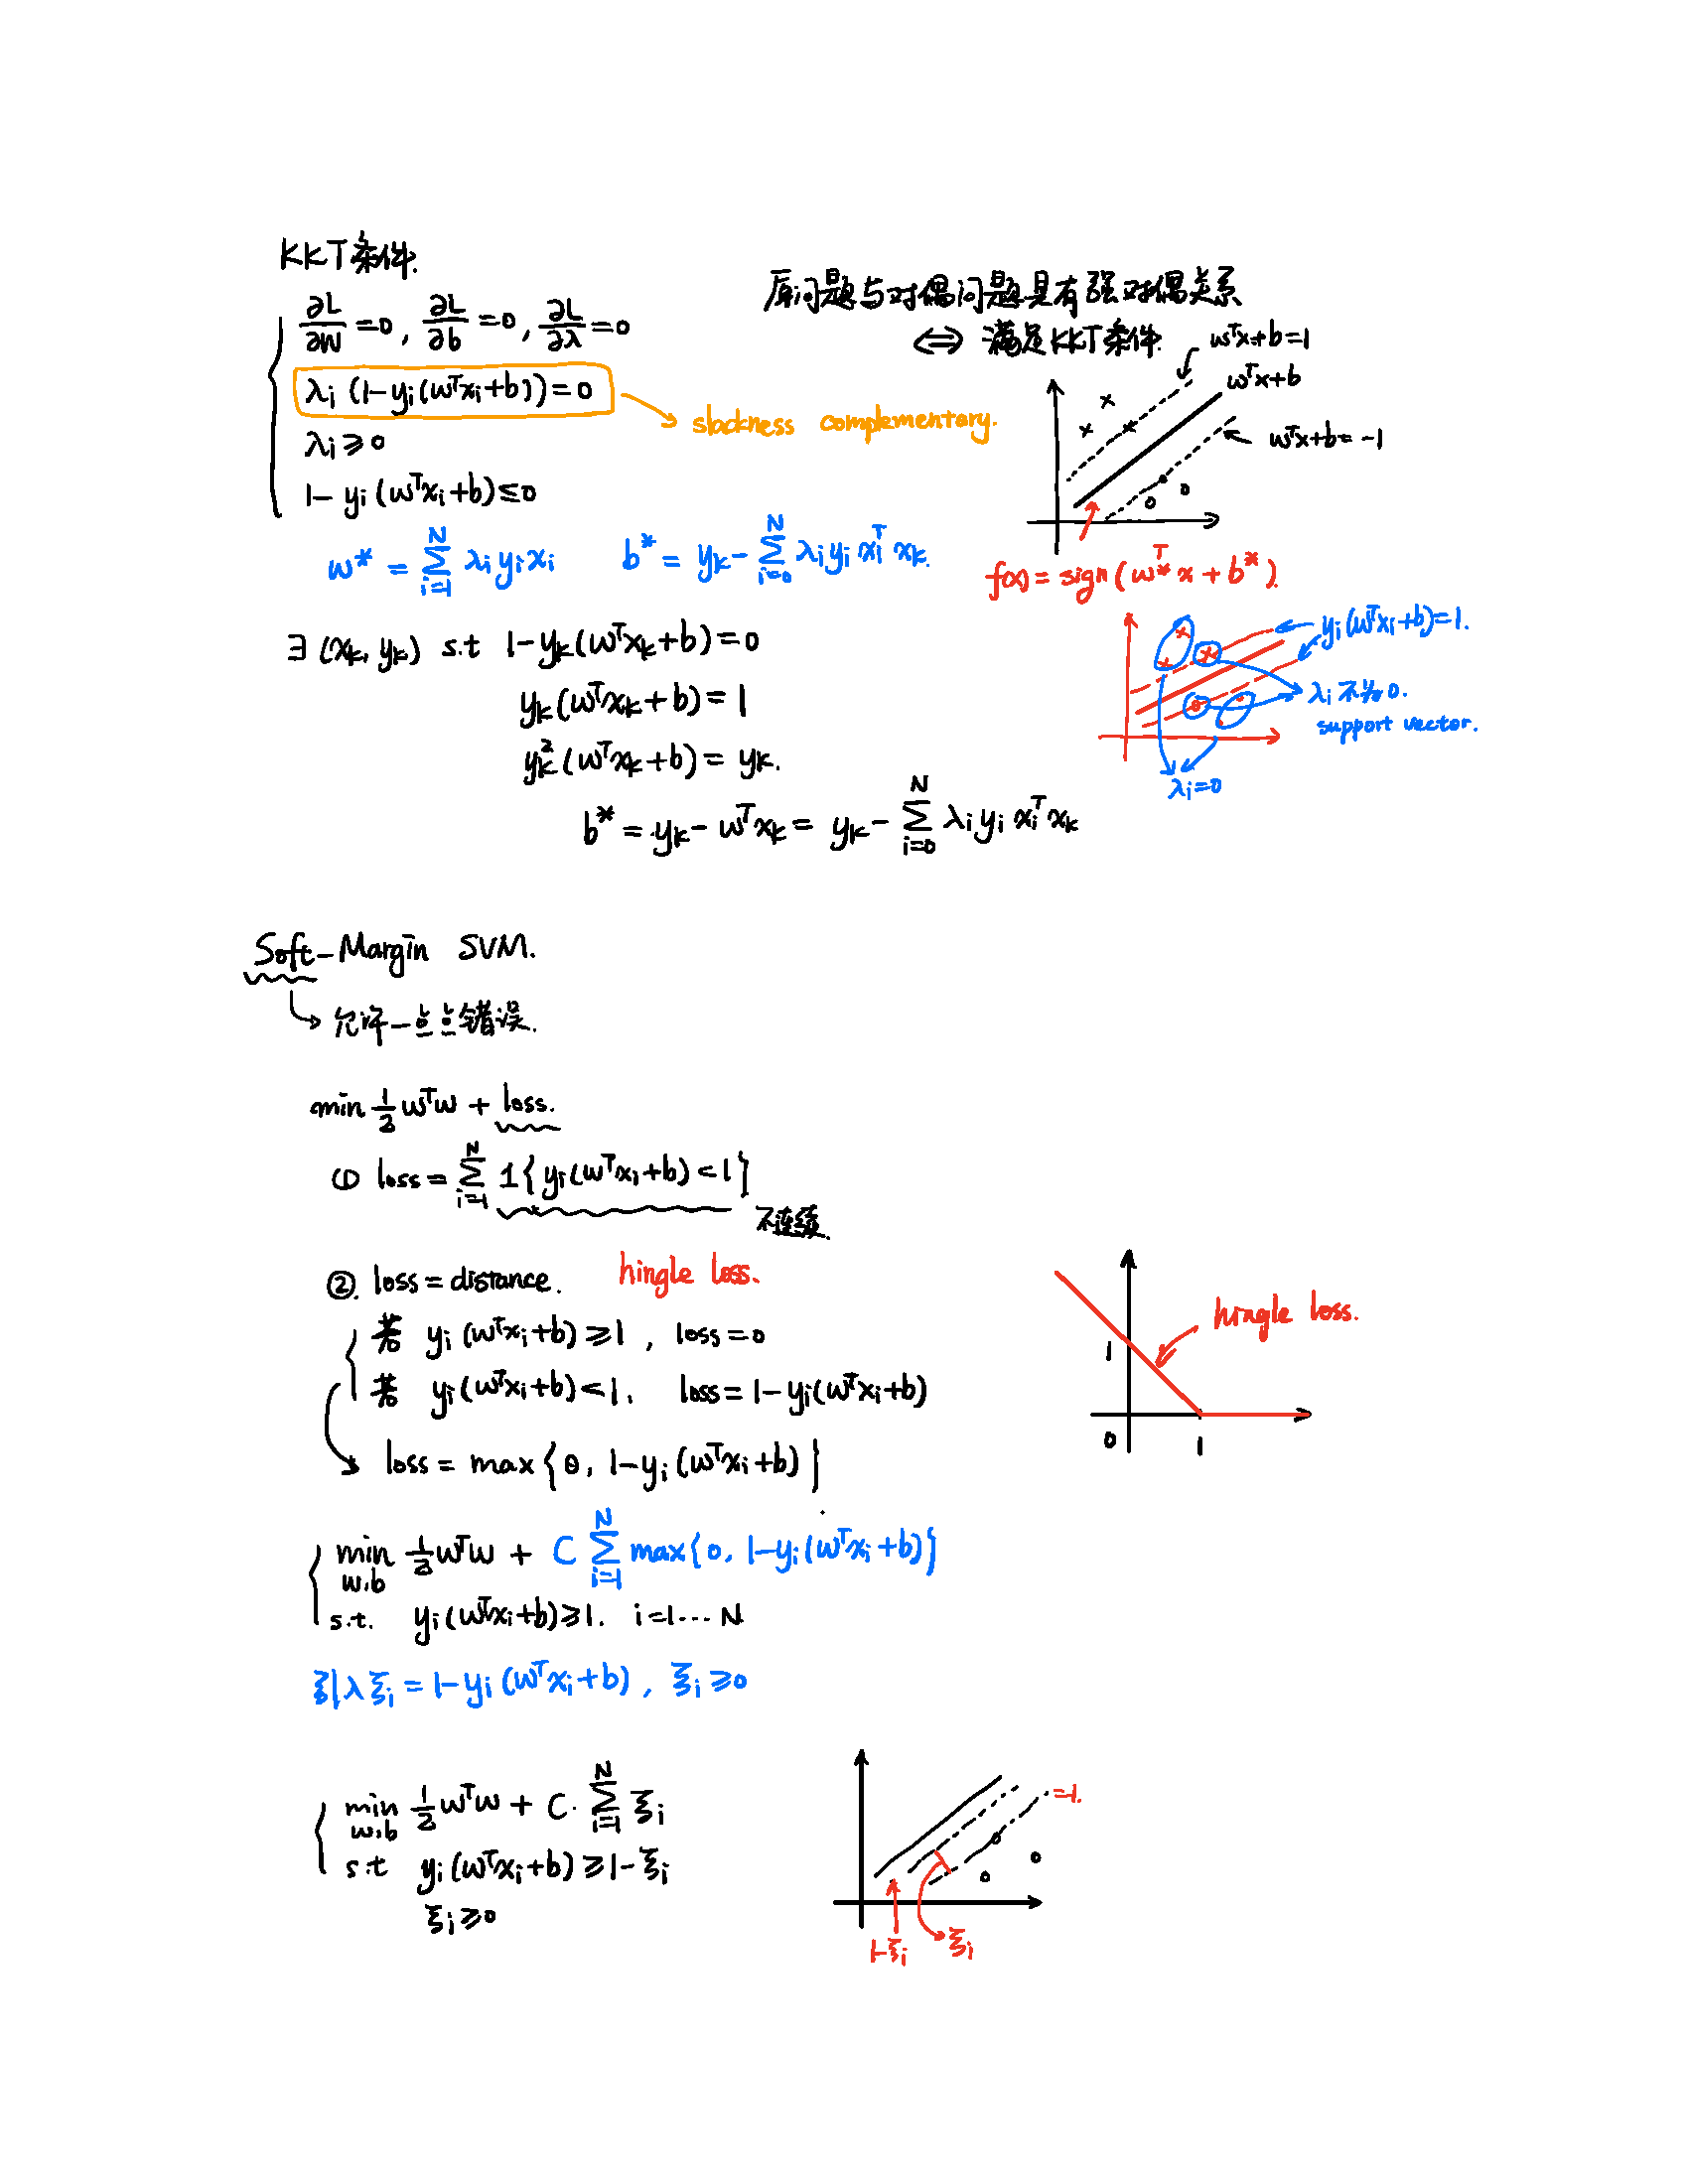 KKT条件.
∂L/∂W =0, ∂L/∂b =0, ∂L/∂λ =0
λi (1-yi(wᵀxi+b))=0
slackness complementory.
λi ≥0
1- yi (wᵀxi+b) ≤0
原问题与对偶问题具有强对偶关系
⟺ 满足KKT条件
wᵀx+b=1
wᵀx+b
wᵀx+b=-1
w* = Σ_{i=1}^{N} λi yi xi    b* = yk- Σ_{i=0}^{N} λi yi xiᵀ xk.
f(x) = sign(w*ᵀx + b*).
∃ (xk, yk) s.t 1-yk(wᵀxk+b)=0
yk(wᵀxk+b)=1
yk²(wᵀxk+b)= yk.
b* = yk- wᵀxk = yk- Σ_{i=0}^{N} λi yi xiᵀ xk
yi(wᵀxi+b)=1.
λi 不为0.
support vector.
λi=0
Soft-Margin SVM.
允许一点点错误.
min ½ wᵀw + loss.
① loss = Σ_{i=1}^{N} 1{yi(wᵀxi+b)<1}
不连续.
②. loss = distance. hingle loss.
若 yi (wᵀxi+b) ≥1, loss=0
若 yi(wᵀxi+b)<1, loss= 1-yi(wᵀxi+b)
loss = max{0, 1-yi(wᵀxi+b)}
hingle loss.
1
0
1
min_{w.b} ½wᵀw + C Σ_{i=1}^{N} max{0, 1-yi(wᵀxi+b)}
s.t. yi(wᵀxi+b)≥1. i=1···N
引入ξi = 1-yi (wᵀxi+b), ξi ≥0
min_{w.b} ½ wᵀw + C· Σ_{i=1}^{N} ξi
s.t yi(wᵀxi+b) ≥1-ξi
ξi ≥0
=-1.
1-ξi
ξi